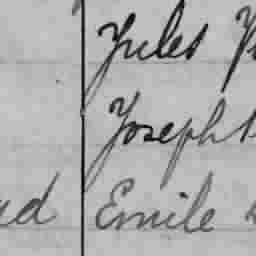 Jules
Joseph
Emile